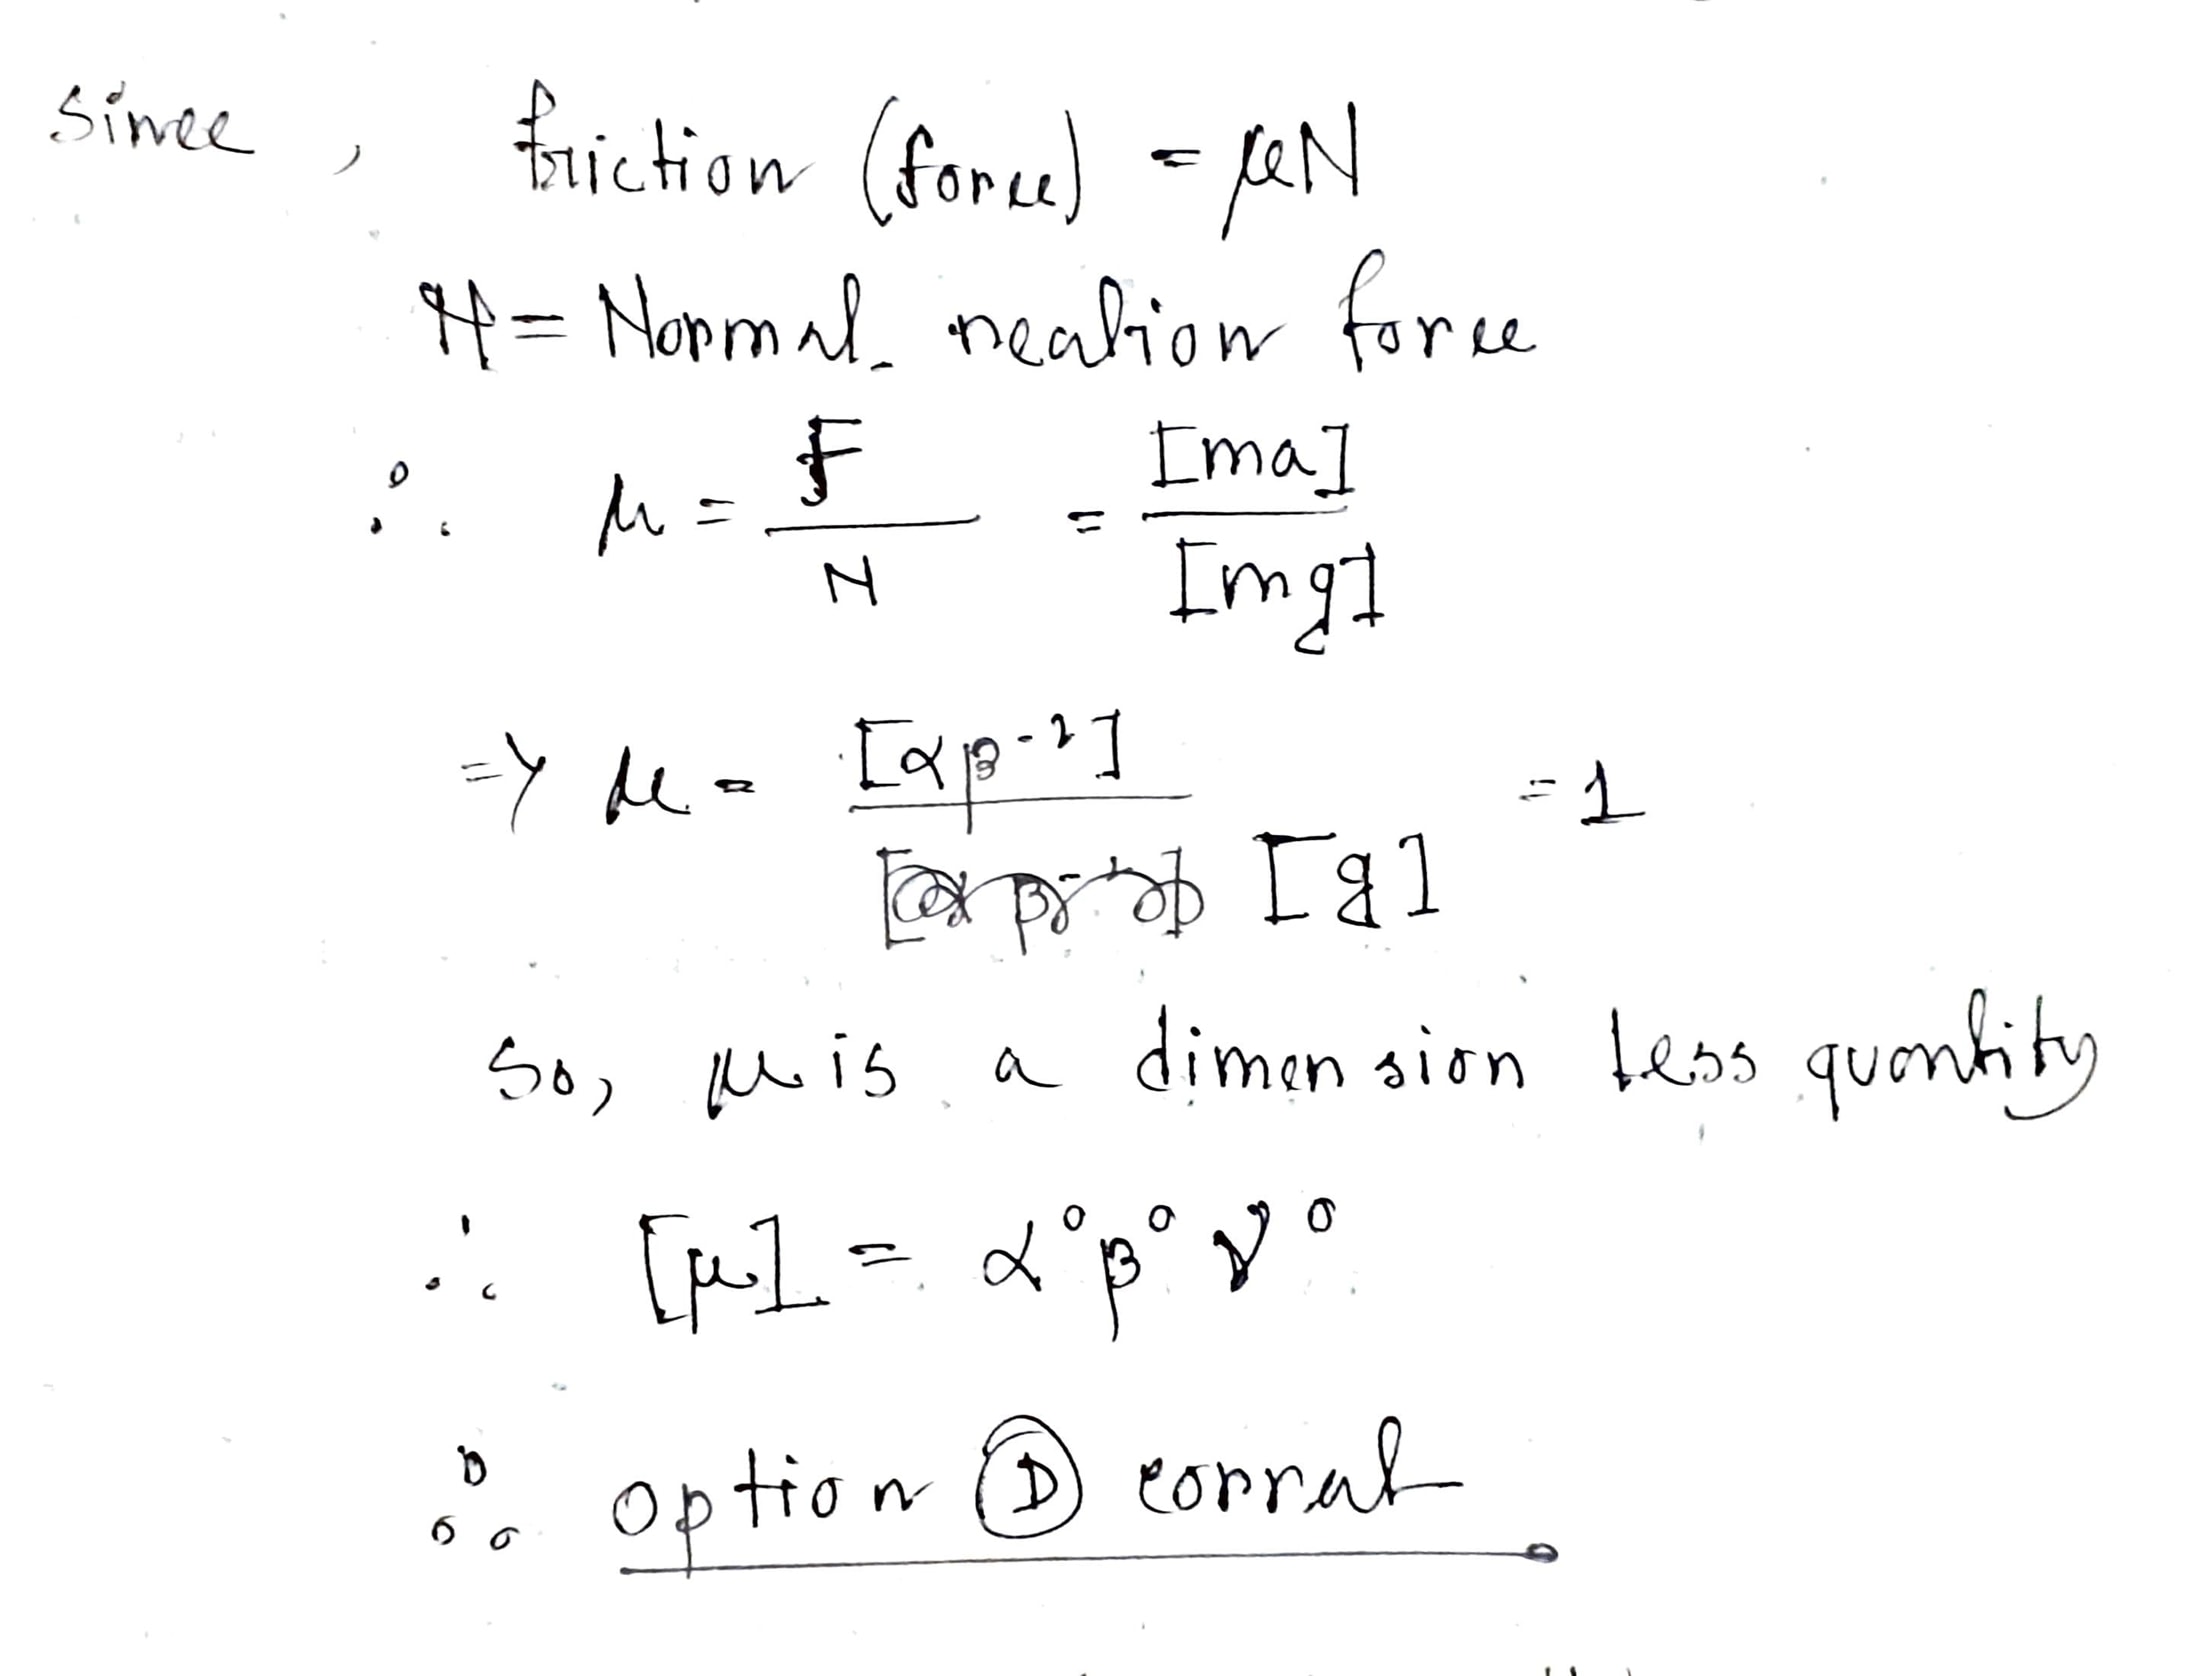 since, friction (force) = μN
N = Normal reaction force
∴ μ = F / N = [ma] / [mg]
=> μ = [αβ⁻²] / [g] = 1
So, μ is a dimension less quantity
∴ [μ] = α⁰β⁰γ⁰
∴ option D correct